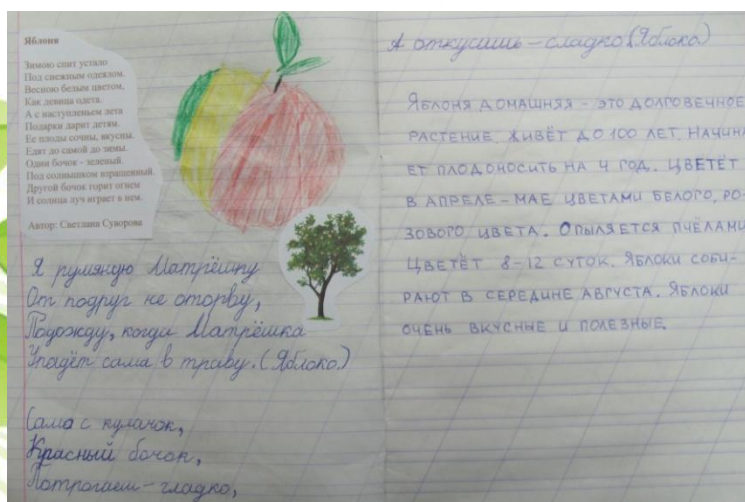 Яблоня
Зимою спит устало
Под снежным одеялом.
Весною белым цветом,
Как девица одета.
А с наступленьем лета
Подарки дарит детям.
Ее плоды сочны, вкусны.
Едят до самой до зимы.
Один бочок - зеленый.
Под солнышком взращенный.
Другой бочок горит огнем
И солнца луч играет в нем.
Автор: Светлана Суворова
Я румяную Матрёшку
От подруг не оторву,
Подожду, когда Матрёшка
Упадёт сама в траву. (Яблоко.)
Сама с кулачок,
Красный бочок,
Потрогаешь – гладко,
А откусишь – сладко (Яблоко)
ЯБЛОНЯ ДОМАШНЯЯ - ЭТО ДОЛГОВЕЧНОЕ
РАСТЕНИЕ. ЖИВЁТ ДО 100 ЛЕТ. НАЧИНА
ЕТ ПЛОДОНОСИТЬ НА 4 ГОД. ЦВЕТЁТ
В АПРЕЛЕ - МАЕ ЦВЕТАМИ БЕЛОГО, РО-
ЗОВОГО ЦВЕТА. ОПЫЛЯЕТСЯ ПЧЁЛАМИ
ЦВЕТЁТ 8-12 СУТОК. ЯБЛОКИ СОБИ-
РАЮТ В СЕРЕДИНЕ АВГУСТА. ЯБЛОКИ
ОЧЕНЬ ВКУСНЫЕ И ПОЛЕЗНЫЕ.